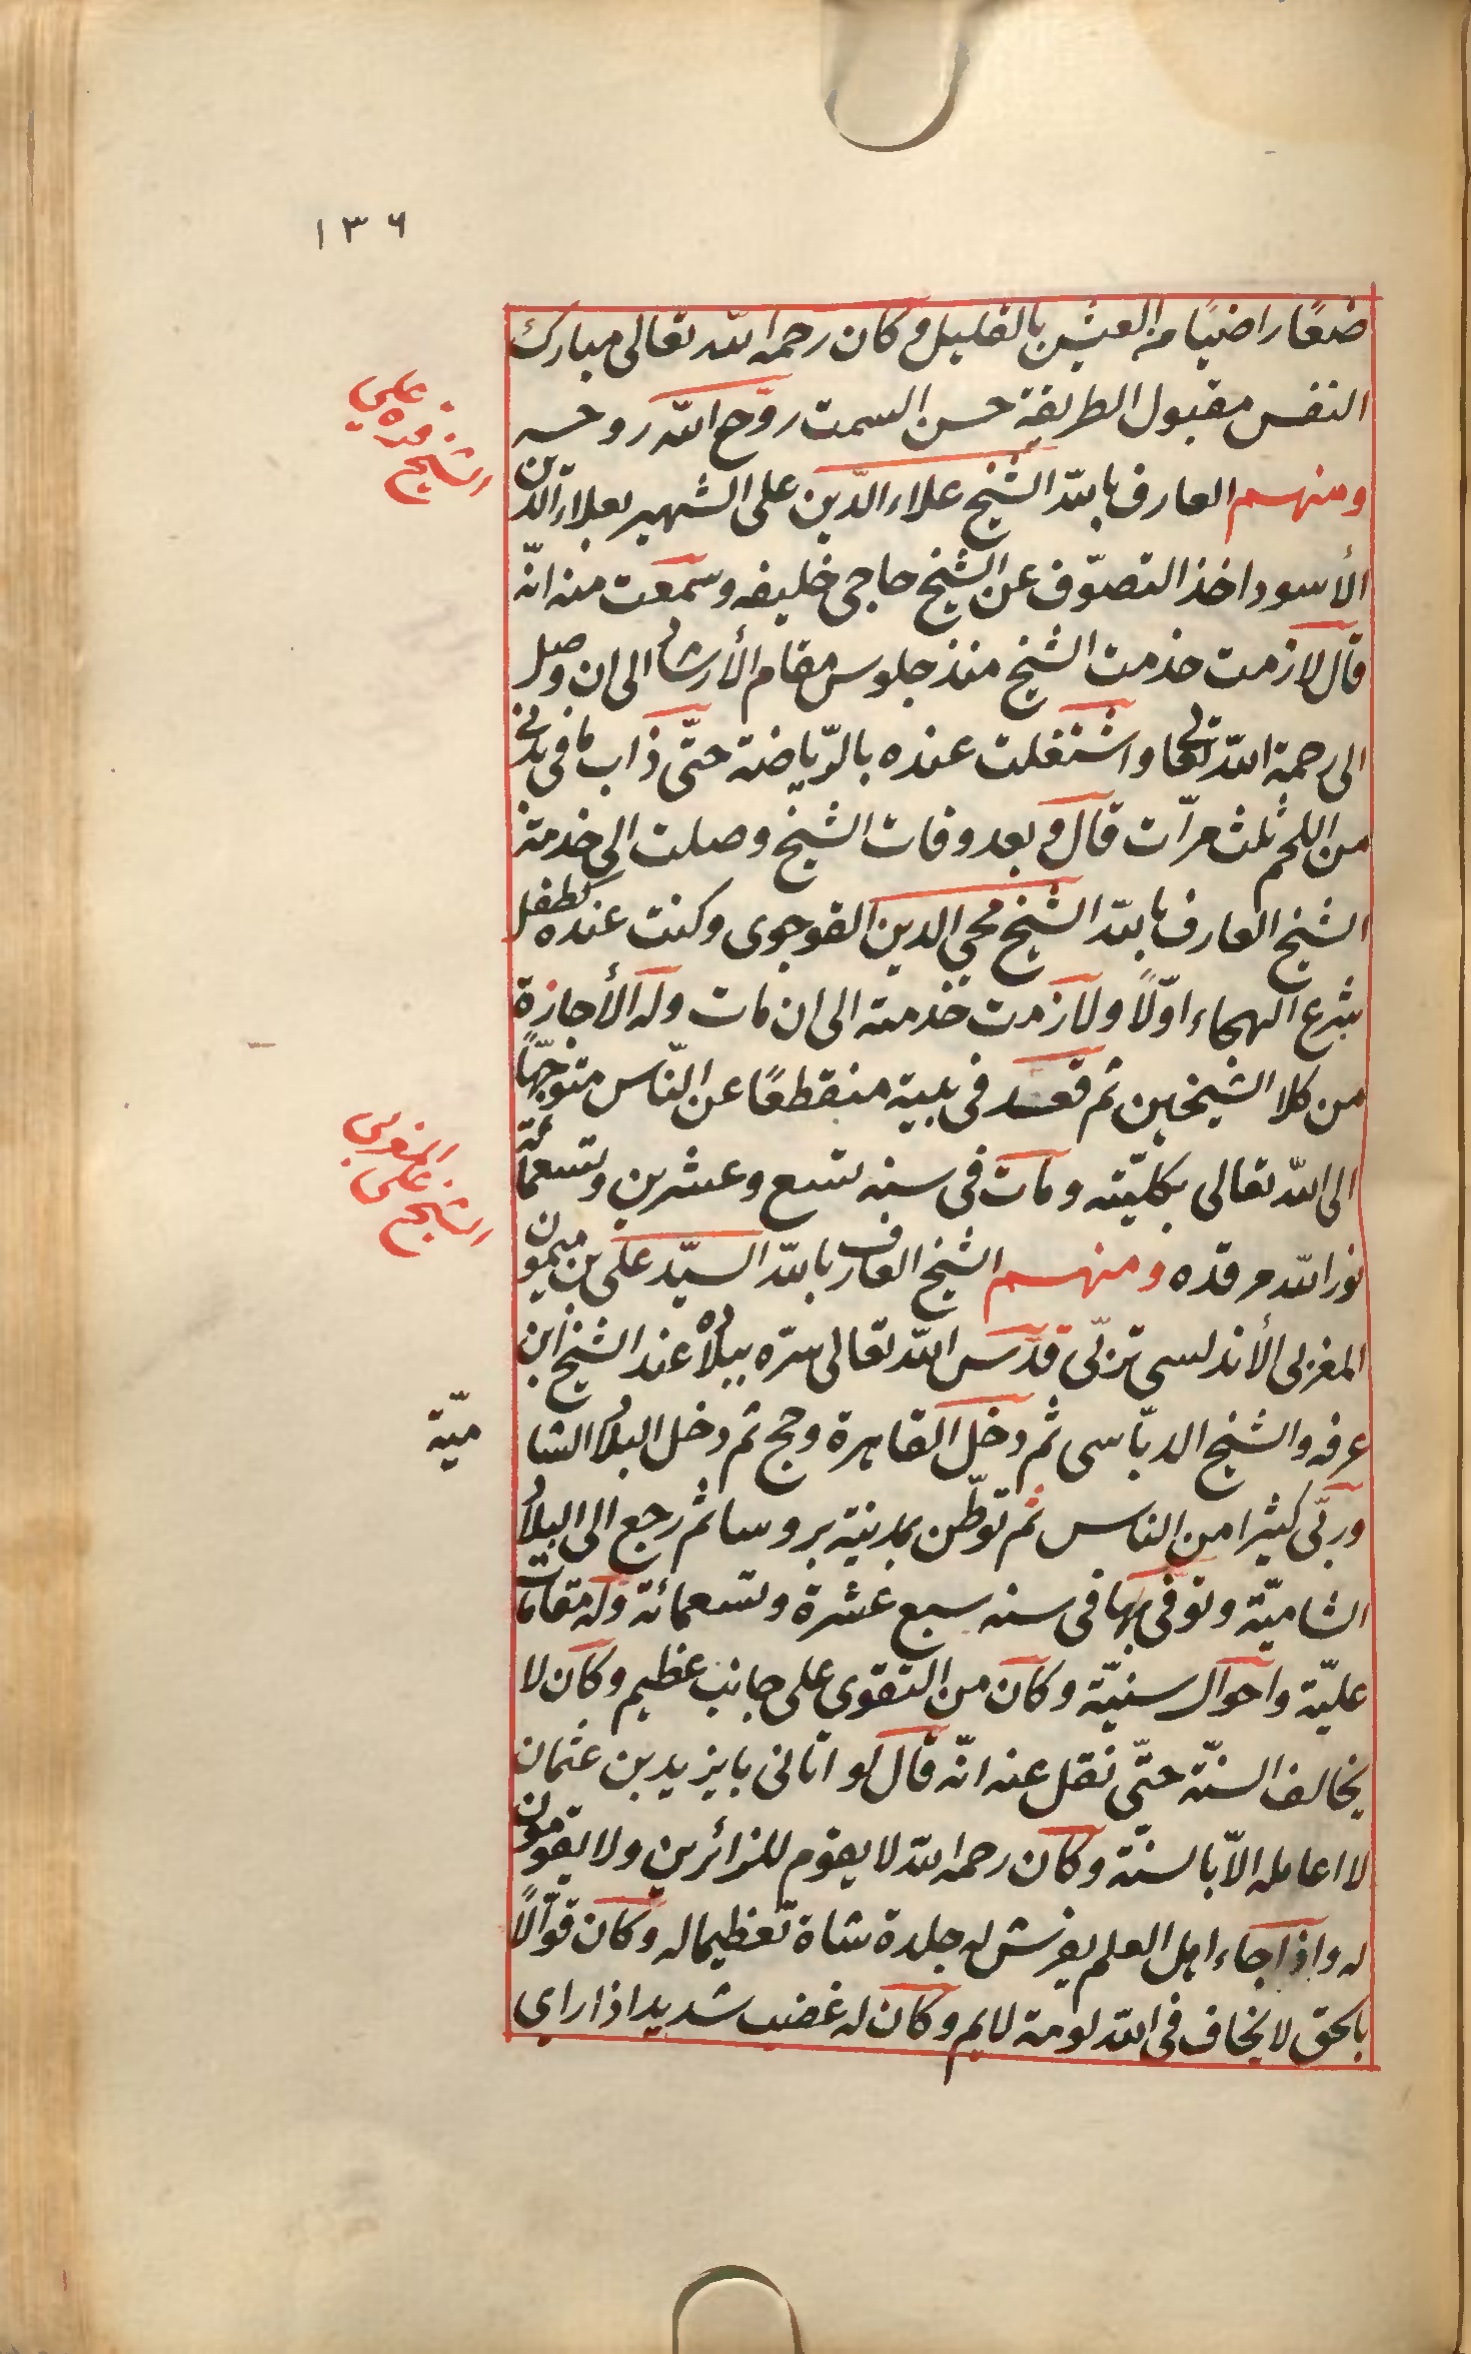 ١٣٦
ضعًا راضيًا من العيش بالقليل وكان رحمه الله تعالى مبارك
النفس مقبول الطريقة حسن السمت روّح الله روحه
الشيخ قره علي
ومنهم العارف بالله الشيخ علاء الدّين على الشهير بعلاء الدين
الأسود اخذ التصوّف عن الشيخ حاجى خليفه وسمعت منه انّه
قال لازمت خدمت الشيخ منذ جلوس مقام الأرشاد الى ان وصل
الى رحمة الله تعالى واشتغلت عنده بالرّياضة حتّى ذاب ما فى بدنى
من اللحم ثلث مرّات قال وبعد وفات الشيخ وصلت الى خدمة
الشيخ العارف بالله الشيخ محي الدين القوجوى وكنت عنده كطفل
شرع الهجاء اوّلًا ولازمت خدمته الى ان مات وله الأجازة
من كلا الشيخين ثم قعد فى بيته منقطعًا عن النّاس متوجّهًا
الى الله تعالى بكليّته ومات فى سنه تسع وعشرين وتسعمائة
الشيخ على المغربى
نور الله مرقده ومنهم الشيخ العارف بالله السيّد على بن ميمون
المغربى الأندلسى تربّى قدّس الله تعالى سرّه ببلاده عند الشيخ ابن
عرفه والشيخ الدبّاسى ثم دخل القاهرة وحج ثم دخل البلاد الشا ميّة
وربّى كثيرا من الناس ثم توطّن بمدينة بروسا ثم رجع الى البلاد
الشاميّة وتوفّى بها فى سنه سبع عشرة وتسعمائة وله مقامات
عليّة واحوال سنيّة وكان من التقوى على جانب عظيم وكان لا
يخالف السنّة حتّى نقل عنه انّه قال لو اتانى بايزيد بن عثمان
لا اعامله الاّ بالسنّة وكان رحمه الله لا يقوم للزائرين ولا يقومون
له واذا جاء اهل العلم يفرش له جلدة شاة تعظيما له وكان قوّالًا
بالحق لا يخاف فى الله لومة لايم وكان له غضب شديد اذا راى